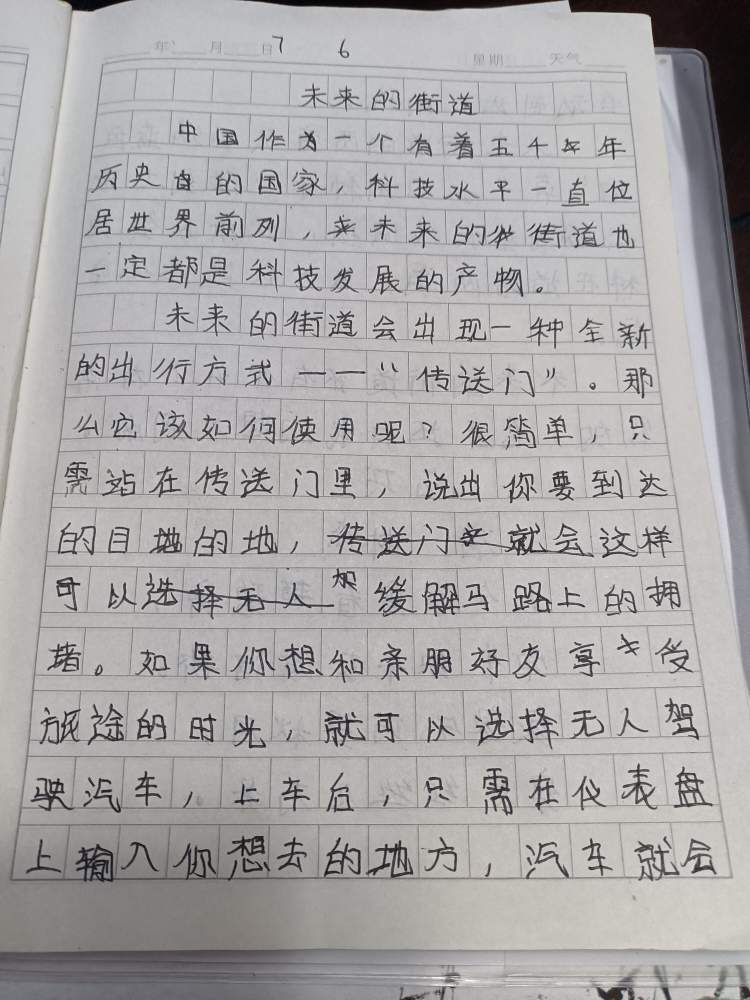 年 月 日 7 6 星期 天气
未来的街道
中国作为一个有着五千年
历史的国家，科技水平一直位
居世界前列，未来的街道也
一定都是科技发展的产物。
未来的街道会出现一种全新
的出行方式——“传送门”。那
么它该如何使用呢？很简单，只
需站在传送门里，说出你要到达
的目地的地，传送门就会这样
可以选择无人驾缓解马路上的拥
堵。如果你想和亲朋好友享受
旅途的时光，就可以选择无人驾
驶汽车，上车后，只需在仪表盘
上输入你想去的地方，汽车就会